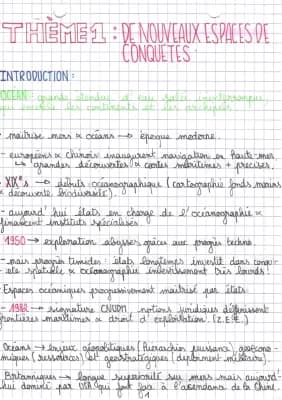 THÈME 1 : DE NOUVEAUX ESPACES DE
CONQUÊTES :
INTRODUCTION :
OCÉAN : grande étendue d'eau salée ininterrompue,
qui encercle des continents et des archipels.
- maîtrise mers & océans → époque moderne.
- européens & chinois inaugurent navigation en haute-mer
↳ grandes découvertes & cartes maritimes + précises.
- XIX°s → débuts océanographique (cartographie fonds marins
& découverte biodiversité).
- aujourd'hui états en charge de l'océanographie &
financent instituts spécialisés.
1950 → exploration abysses grâces aux progrès techno.
- mais progrès timides : états longtemps investit dans conqu-
ête spatiale & océanographie investissement très lourds !
- Espaces océaniques progressivement maîtrisé par états.
- 1982 → signature CNUDM, notions juridiques définissent
frontières maritimes & droit d'exploitation. (Z.E.E.)
Océans → enjeux géopolitiques (hiérarchie puissance), géoécono-
miques (ressources) et géostratégiques (déploiment militaire).
Britanniques → longue supériorité sur mers mais aujourd-
hui dominé par USA qui font face à l'ascendance de la Chine.
1